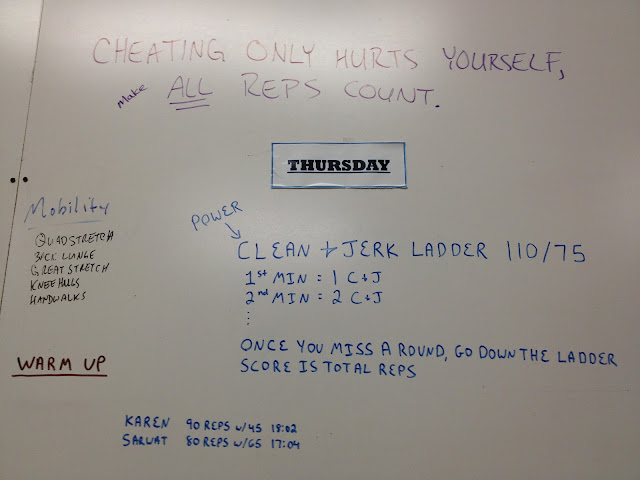 CHEATING ONLY HURTS YOURSELF,
Make ALL REPS COUNT.
THURSDAY
Mobility
QUADSTRETCH
BACK LUNGE
GREAT STRETCH
KNEE HUGS
HANDWALKS
WARM UP
POWER
CLEAN + JERK LADDER 110/75
1st MIN = 1 C+J
2nd MIN = 2 C+J
⋮
ONCE YOU MISS A ROUND, GO DOWN THE LADDER
SCORE IS TOTAL REPS
KAREN 90 REPS w/45 18:02
SARWAT 80 REPS w/65 17:04